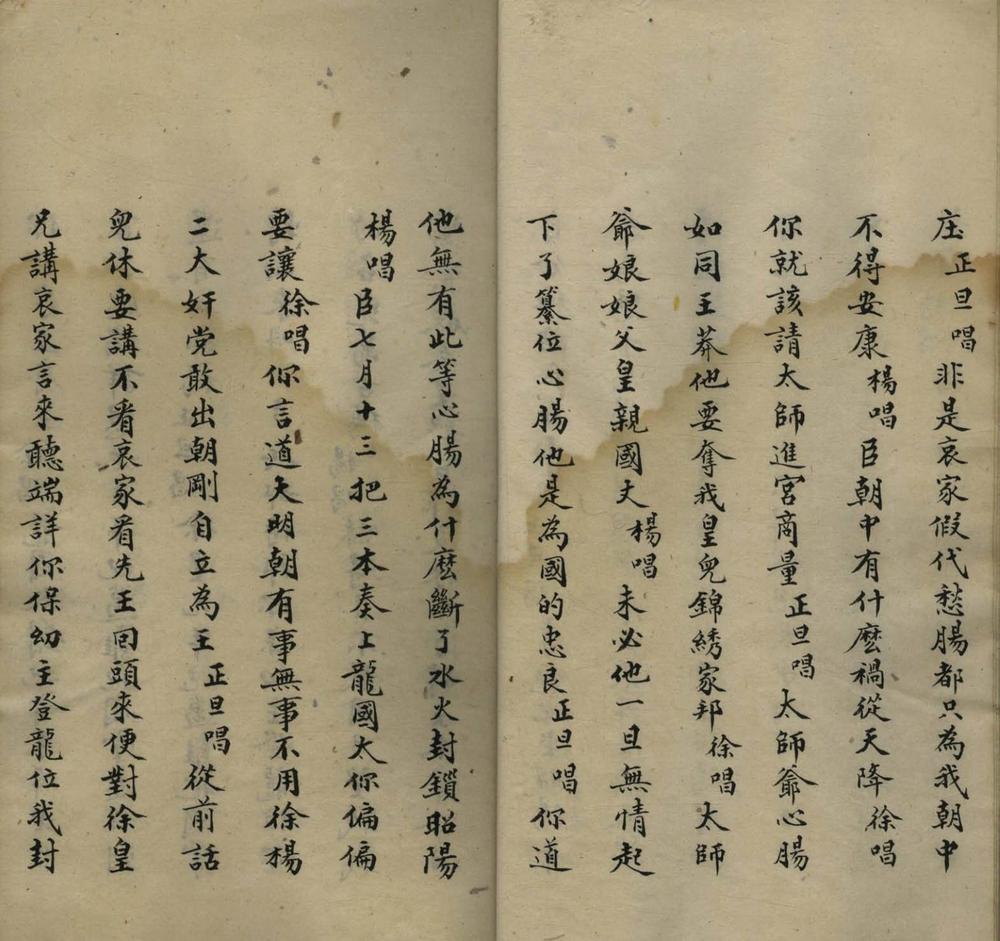 庄正旦唱非是哀家假代愁腸都只為我朝中
不得安康楊唱臣朝中有什麽禍從天降徐唱
你就該請太師進宮商量正旦唱太師爺心腸
如同王莽他要奪我皇兒錦綉家邦徐唱太師
爺娘娘父皇親國丈楊唱未必他一旦無情起
下了纂位心腸他是為國的忠良正旦唱你道
他無有此等心腸為什麽斷了水火封鎖昭陽
楊唱臣七月十三把三本奏上龍國太你偏偏
要讓徐唱你言道大明朝有事無事不用徐楊
二大奸党敢出朝剛自立為王正旦唱從前話
兒休要講不看哀家看先王回頭來便對徐皇
兄講哀家言來聽端詳你保幼主登龍位我封